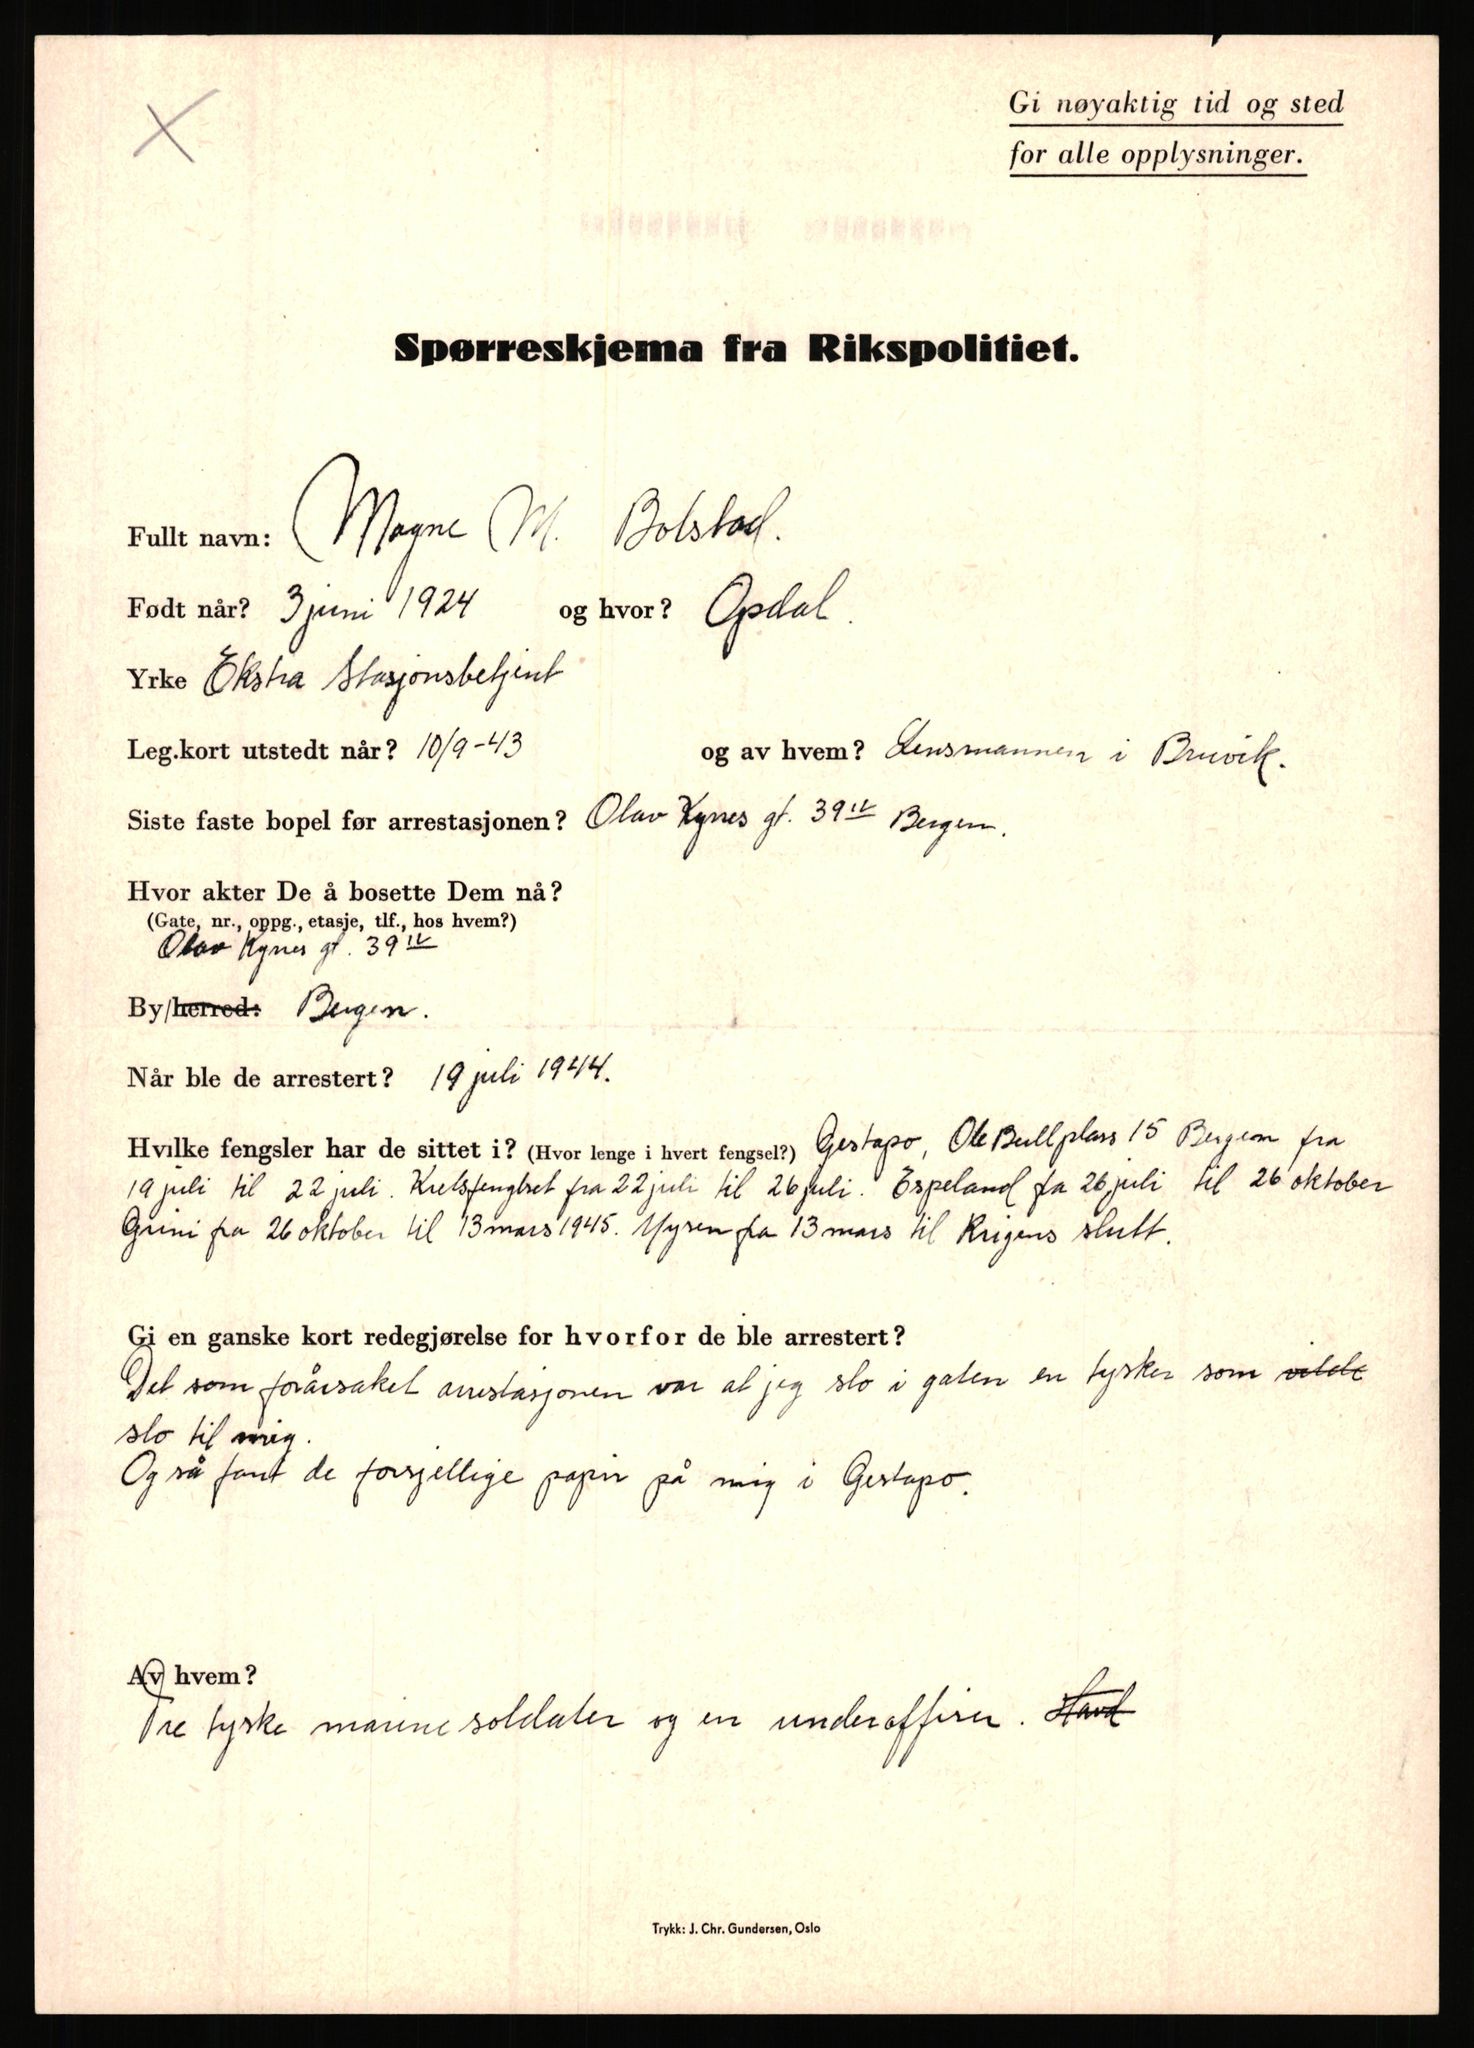 Gi nøyaktig tid og sted
for alle opplysninger.
Spørreskjema fra Rikspolitiet.
Fullt navn: Magne M. Bolstad.
Født når? 3 juni 1924 og hvor? Opdal.
Yrke Ekstra Stasjonsbetjent
Leg.kort utstedt når? 10/9-43 og av hvem? Lensmannen i Bruvik.
Siste faste bopel før arrestasjonen? Olav Kyrres gt. 39 IV Bergen.
Hvor akter De å bosette Dem nå?
(Gate, nr., oppg., etasje, tlf., hos hvem?)
Olav Kyrres gt. 39 IV
By/herred: Bergen.
Når ble de arrestert? 19 juli 1944.
Hvilke fengsler har de sittet i? (Hvor lenge i hvert fengsel?) Gestapo, Ole Bull plass 15 Bergen fra
19 juli til 22 juli. Kretsfengslet fra 22 juli til 26 juli. Espeland fa 26 juli til 26 oktober
Grini fra 26 oktober til 13 mars 1945. Mysen fra 13 mars til Krigens slutt.
Gi en ganske kort redegjørelse for hvorfor de ble arrestert?
Det som forårsaket arrestasjonen var at jeg slo i gaten en tysker som vilde
slo til mig.
Og så fant de forsjellige papir på mig i Gestapo.
Av hvem?
Tre tyske marinesoldater og en underoffiser.
Trykk: J. Chr. Gundersen, Oslo